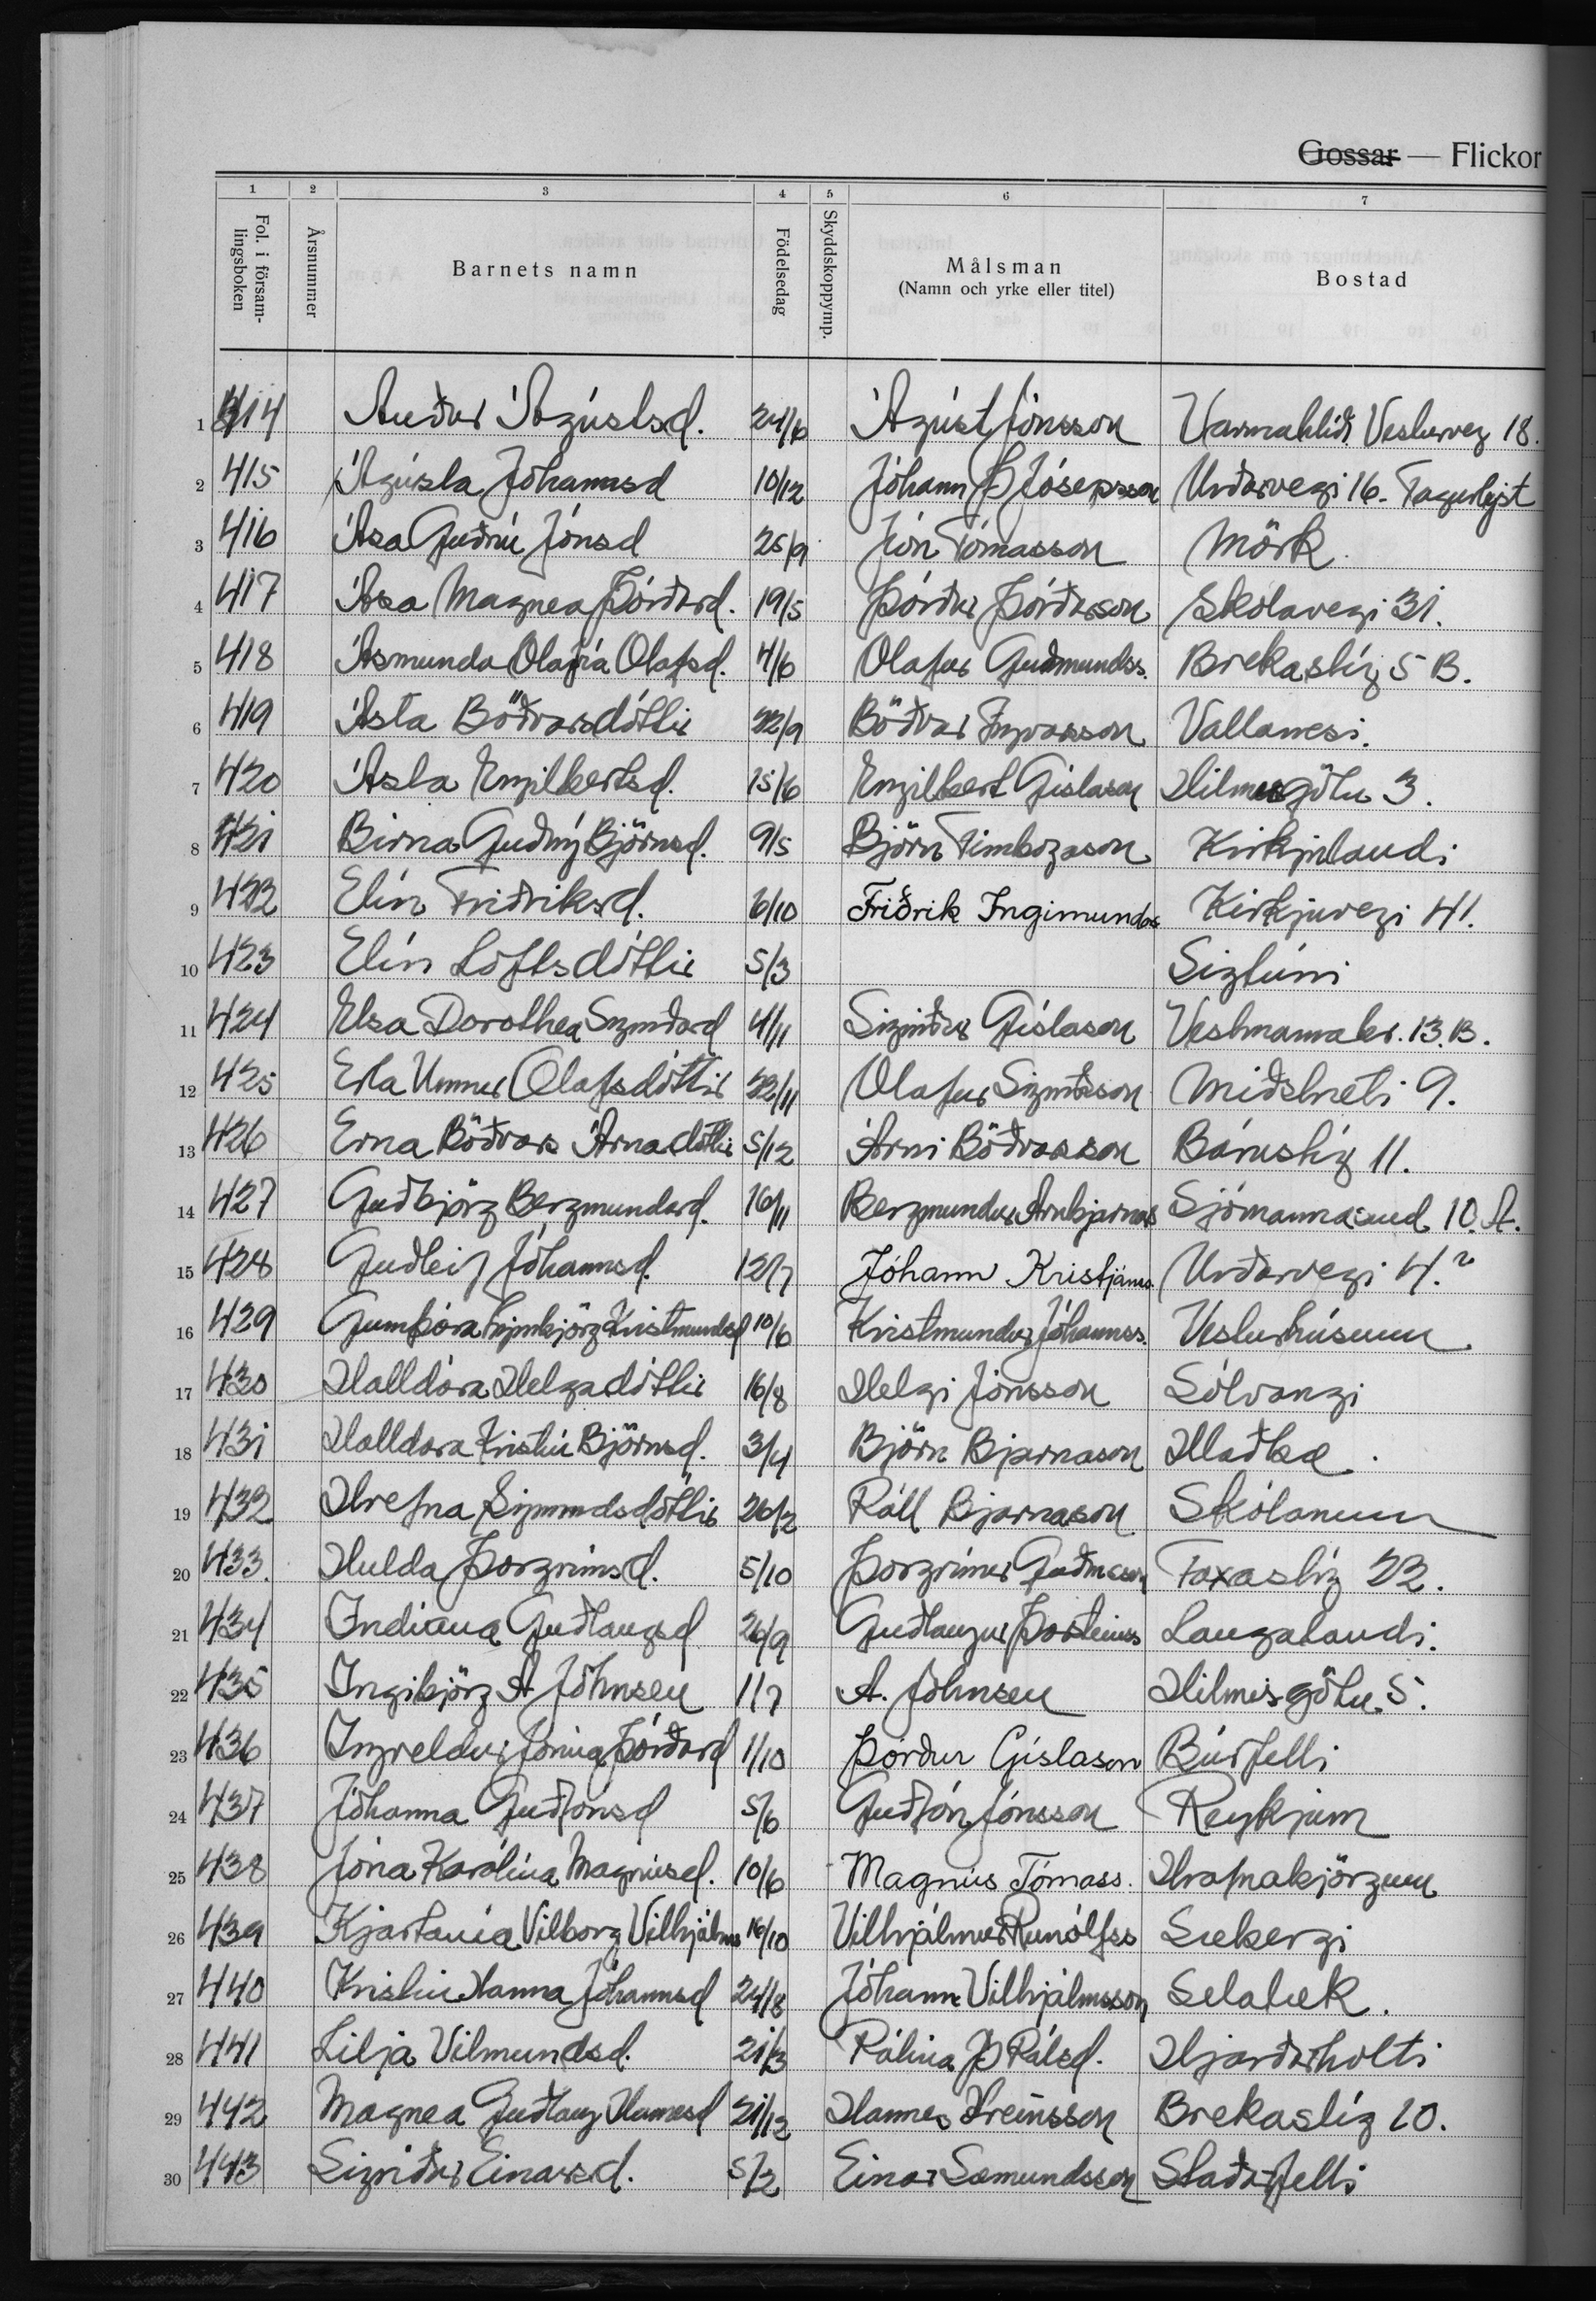 Gossar — Flickor
1 2 3 4 5 6 7
Fol. i försam-
lingsboken
Årsnummer
Barnets namn
Födelsedag
Skyddskoppymp.
Målsman
(Namn och yrke eller titel)
Bostad
1 414 Auður Ágústsd. 24/6 Ágúst Jónsson Varmahlíð Vesturveg 18.
2 415 Ágústa Jóhannsd 10/12 Jóhann Þ Jósepsson Urðarvegi 16. Fagurlyst
3 416 Ása Guðrún Jónsd 25/9 Jón Tómasson Mörk.
4 417 Ása Magnea Þórðard. 19/5 Þórður Þórðarson Skólavegi 31.
5 418 Ásmunda Ólafía Ólafsd. 4/6 Ólafur Guðmundss. Brekastíg 5 B.
6 419 Ásta Böðvarsdóttir 22/9 Böðvar Ingvarsson Vallanesi.
7 420 Ásta Engilbertsd. 15/6 Engilbert Gíslason Hilmisgötu 3.
8 421 Birna Guðný Björnsd. 9/5 Björn Finnbogason Kirkjulandi
9 422 Elín Friðriksd. 6/10 Friðrik Ingimundar Kirkjuvegi 41.
10 423 Elín Loftsdóttir 5/3 Sigtúni
11 424 Elsa Dorothea Sigurðard 4/11 Sigurður Gíslason Vestmannabr. 13.B.
12 425 Erla Unnur Ólafsdóttir 22/11 Ólafur Sigurðsson Miðstræti 9.
13 426 Erna Böðvars Árnadóttir 5/12 Árni Böðvarsson Bárustíg 11.
14 427 Guðbjörg Bergmundard. 16/11 Bergmundur Arnbjarnas Sjómannasund 10.A.
15 428 Guðleif Jóhannsd. 12/7 Jóhann Kristjánss. Urðarvegi 4.
16 429 Gunnþóra Kristmundsd 10/6 Kristmundur Jóhannss. Vesturhúsum
17 430 Halldóra Helgadóttir 16/8 Helgi Jónsson Sólvangi
18 431 Halldóra Kristín Björnsd. 3/4 Björn Bjarnason Hlaðbæ.
19 432 Hrefna Sigmundsdóttir 26/2 Páll Bjarnason Skólanum
20 433. Hulda Þorgrímsd. 5/10 Þorgrímur Guðmsson Faxastíg 22.
21 434 Indíana Guðlaugsd 26/9 Guðlaugur Þorsteinss Laugalandi.
22 435 Ingibjörg Á Jóhnsen 1/7 Á. Jóhnsen Hilmisgötu 5.
23 436 Ingveldur Jónína Þórðard 1/10 Þórður Gíslason Búrfelli
24 437 Jóhanna Guðjónsd 5/6 Guðjón Jónsson Reykjum
25 438 Jóna Karólína Magnúsd. 10/6 Magnús Tómass. Hrafnabjörgum
26 439 Kjartanía Vilborg Vilhjálms 16/10 Vilhjálmur Runólfss Sæbergi
27 440 Kristín Hanna Jóhannsd 24/8 Jóhann Vilhjálmsson Selalæk.
28 441 Lilja Vilmundsd. 21/3 Pálína Þ Pálsd. Hjarðarholti
29 442 Magnea Guðlaug Hannesd 21/12 Hannes Hreinsson Brekastíg 10.
30 443 Sigríður Einarsd. 5/2 Einar Sæmundsson Staðarfelli